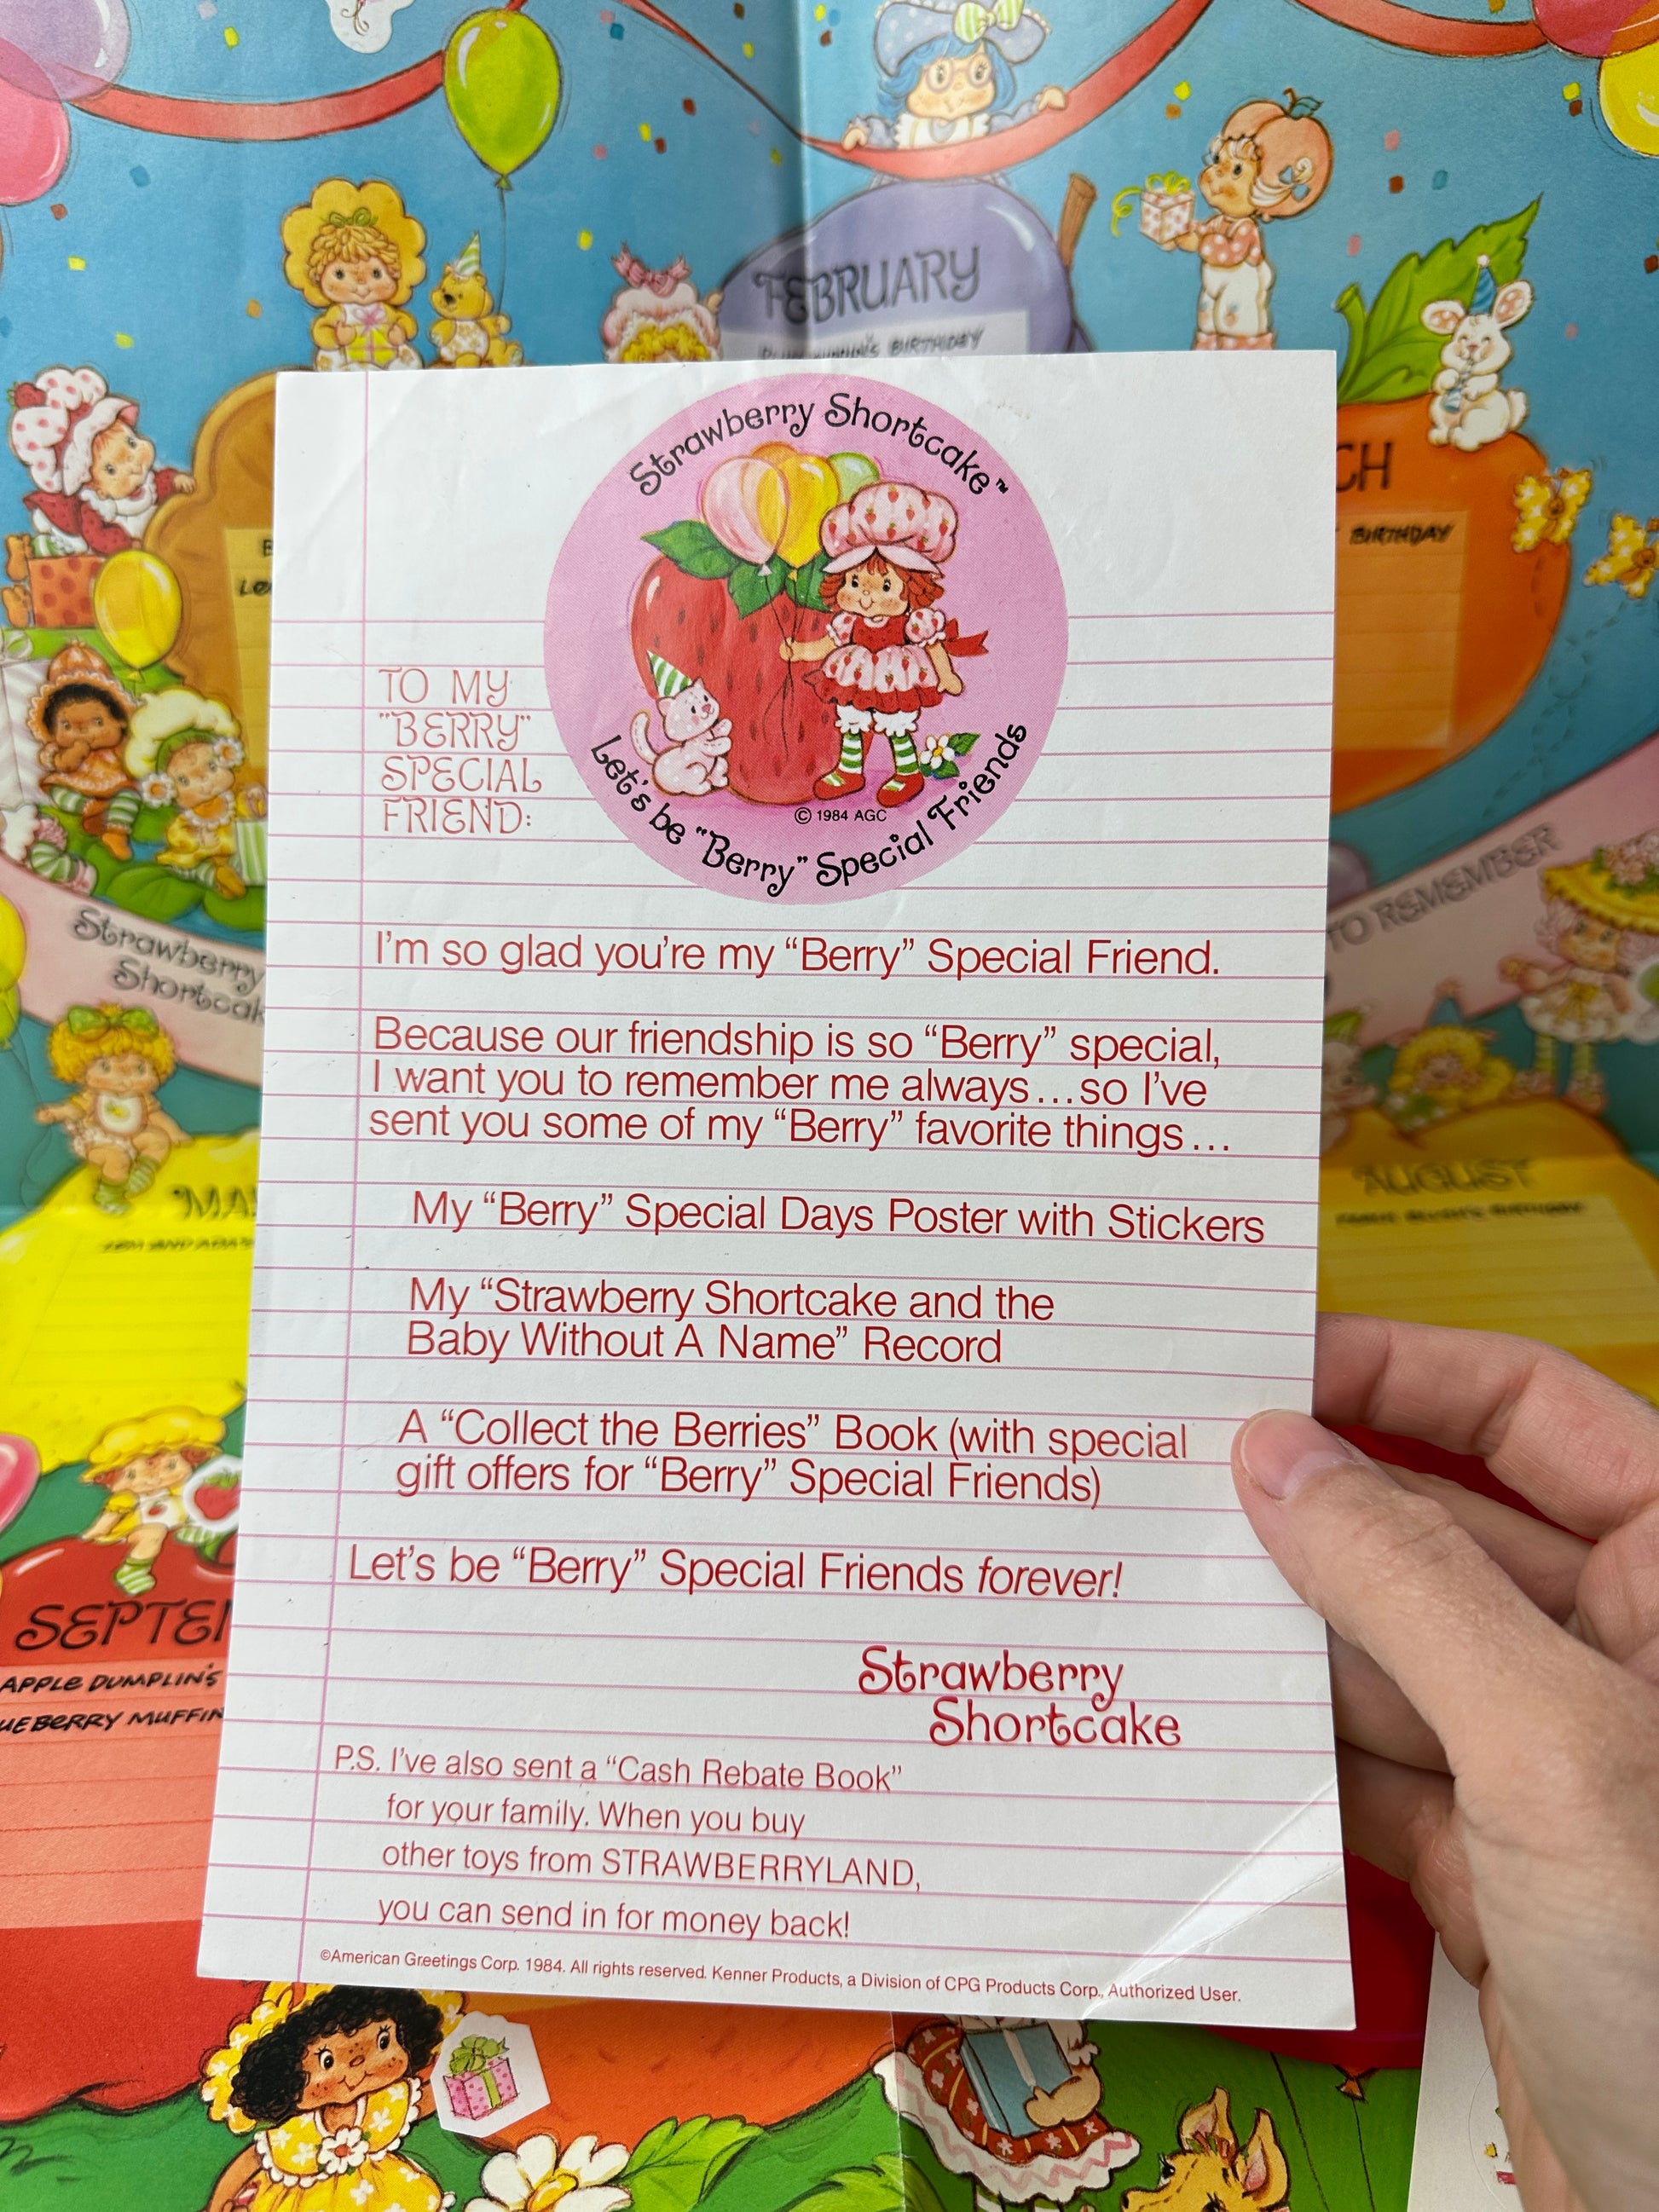 FEBRUARY
BIRTHDAY
CH
BIRTHDAY
Strawberry Shortcake™
Let's be "Berry" Special Friends
© 1984 AGC
TO MY
"BERRY"
SPECIAL
FRIEND:
I'm so glad you're my "Berry" Special Friend.
Because our friendship is so "Berry" special,
I want you to remember me always...so I've
sent you some of my "Berry" favorite things...
My "Berry" Special Days Poster with Stickers
My "Strawberry Shortcake and the
Baby Without A Name" Record
A "Collect the Berries" Book (with special
gift offers for "Berry" Special Friends)
Let's be "Berry" Special Friends forever!
Strawberry
Shortcake
P.S. I've also sent a "Cash Rebate Book"
for your family. When you buy
other toys from STRAWBERRYLAND,
you can send in for money back!
©American Greetings Corp. 1984. All rights reserved. Kenner Products, a Division of CPG Products Corp., Authorized User.
Strawberry
Shortcak
TO REMEMBER
MA
AUGUST
BIRTHDAY
SEPTE
APPLE DUMPLIN'S
UEBERRY MUFFIN